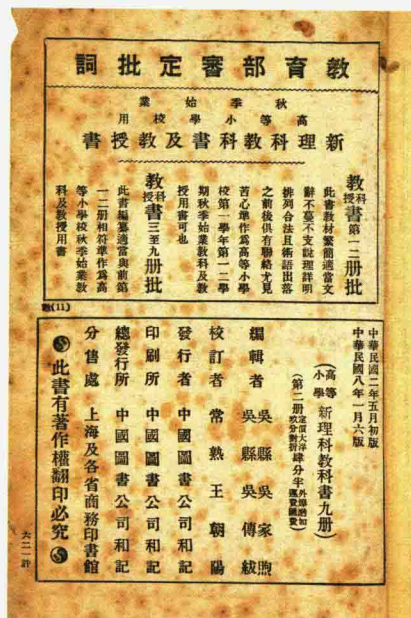 教育部審定批詞
秋季始業
高等小學校用
新理科教科書及教授書
教科
授書第一二册批
此書教材繁簡適當文
辭不蔓不支說理詳明
排列合法且術語出落
之前後俱有聯絡尤見
苦心準作爲高等小學
校第一學年第一二學
期秋季始業教科及教
授用書可也
教科
授書三至九册批
此書編纂適當與前第
一二册相符準作爲高
等小學校秋季始業教
科及教授用書
(11)
中華民國二年五月初版
中華民國八年一月六版
(高等小學新理科教科書九册)
(第二册定價大洋肆分半
編輯者 吳縣吳家煦
吳縣吳傳紱
校訂者 常熟王朝陽
發行者 中國圖書公司和記
印刷所 中國圖書公司和記
總發行所 中國圖書公司和記
分售處 上海及各省商務印書館
此書有著作權翻印必究
六二一許